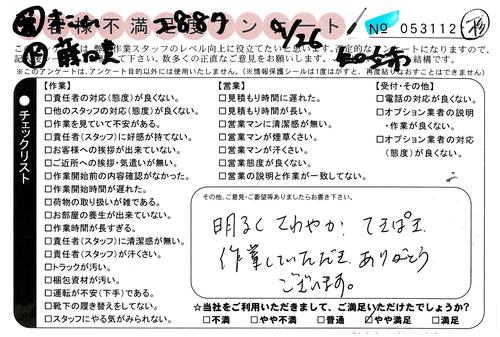 お客様不満足度アンケート
2889
4/26
№ 053112
このアンケートは、弊社作業スタッフのレベル向上に役立てたいと思います。否定的なアンケートになりますので、
数多くの正直なご意見をお願いします。
結構です。
※このアンケートは、アンケート目的以外には使用いたしません。(※情報保護シールは1度はがすと、再度貼りなおすことはできません)
チェックリスト
【作業】
□責任者の対応(態度)が良くない。
□他のスタッフの対応(態度)が良くない。
□作業を見ていて不安がある。
□責任者(スタッフ)に好感が持てない。
□お客様への挨拶が出来ていない。
□ご近所への挨拶・気遣いが無い。
□作業開始前の内容確認がなかった。
□作業開始時間が遅れた。
□荷物の取り扱いが雑である。
□お部屋の養生が出来ていない。
□作業時間が長すぎる。
□責任者(スタッフ)に清潔感が無い。
□責任者(スタッフ)が汗くさい。
□トラックが汚い。
□梱包資材が汚い。
□運転が不安(下手)である。
□靴下の履き替えをしてない。
□スタッフにやる気がみられない。
【営業】
□見積もり時間に遅れた。
□見積もり時間が長い。
□営業マンに清潔感が無い。
□営業マンが煙草くさい。
□営業マンが汗くさい。
□営業態度が良くない。
□営業の説明と作業が一致してない。
【受付・その他】
□電話の対応が良くない。
□オプション業者の説明
・作業が良くない。
□オプション業者の対応
(態度)が良くない。
その他、ご意見・ご要望等ありましたらお書き下さい。
明るく さわやか、てきぱき
作業していただき ありがとう
ございます。
☆当社をご利用いただきまして、ご満足いただけたでしょうか?
□不満 □やや不満 □普通 ☑やや満足 □満足